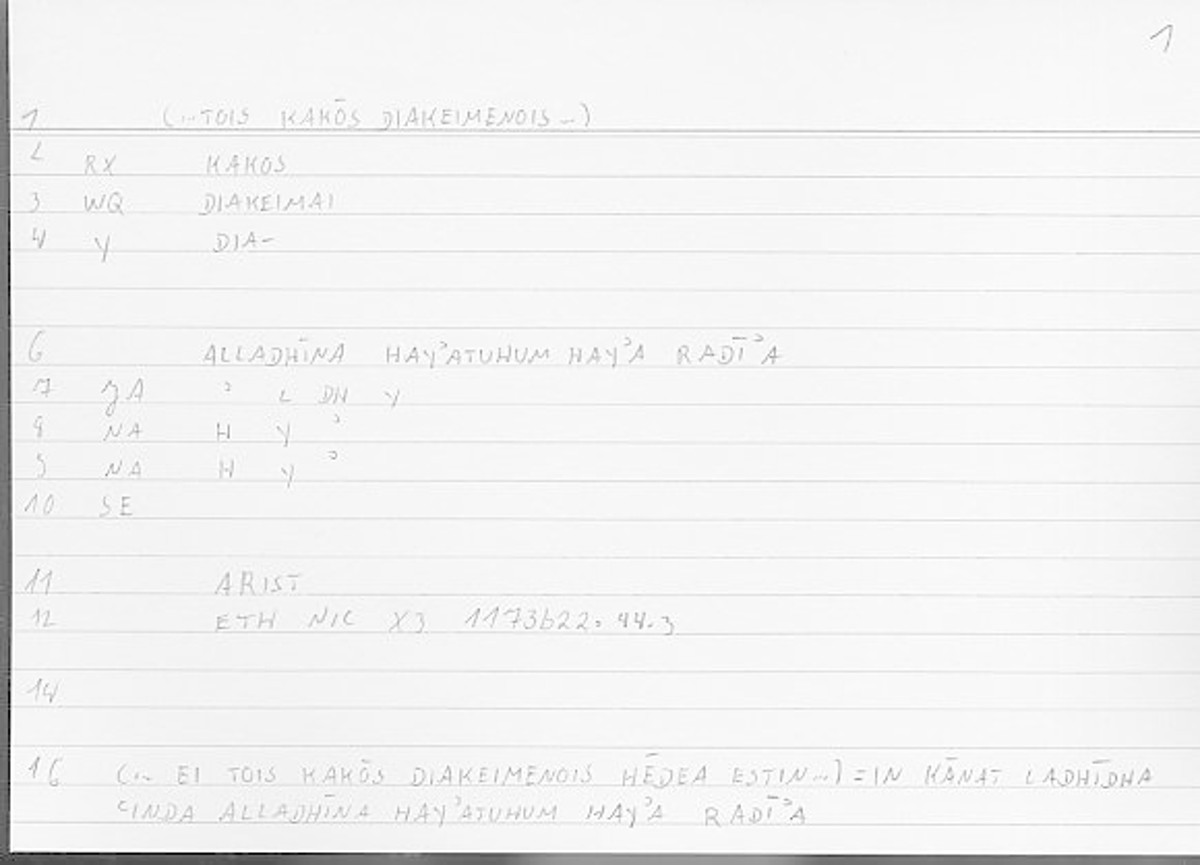 1
1 (...TOIS KAKŌS DIAKEIMENOIS...)
2 RX KAKOS
3 WQ DIAKEIMAI
4 Y DIA-
6 ALLADHĪNA HAYʾATUHUM HAYʾA RADĪʾA
7 ʾ L DH Y
8 NA H Y ʾ
9 NA H Y ʾ
10 SE
11 ARIST
12 ETH NIC X3 1173b22. 44.3
14
16 (... EI TOIS KAKŌS DIAKEIMENOIS HĒDEA ESTIN...) = IN KĀNAT LADHĪDHA
ʿINDA ALLADHĪNA HAYʾATUHUM HAYʾA RADĪʾA